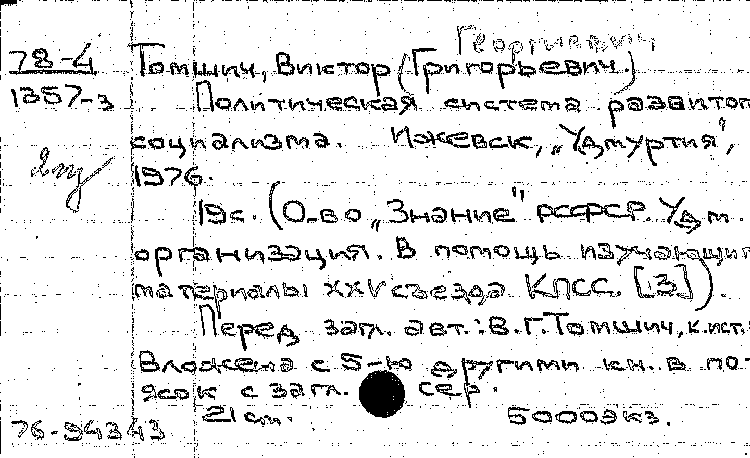 Георгиевич
78-4 Томшич, Виктор (Григорьевич.)
1357-3 Политическая система развитог
социализма. Ижевск, „Удмуртия",
1976.
19с. (О-во „Знание" РСФСР. Удм.
организация. В помощь изучающим
материалы XXV съезда КПСС. [13]).
Перед загл. авт.: В.Г.Томшич, к.ист.
Вложена с 5-ю другими кн. в по-
ясок с загл. сер.
21 см. 5000экз.
76-94343